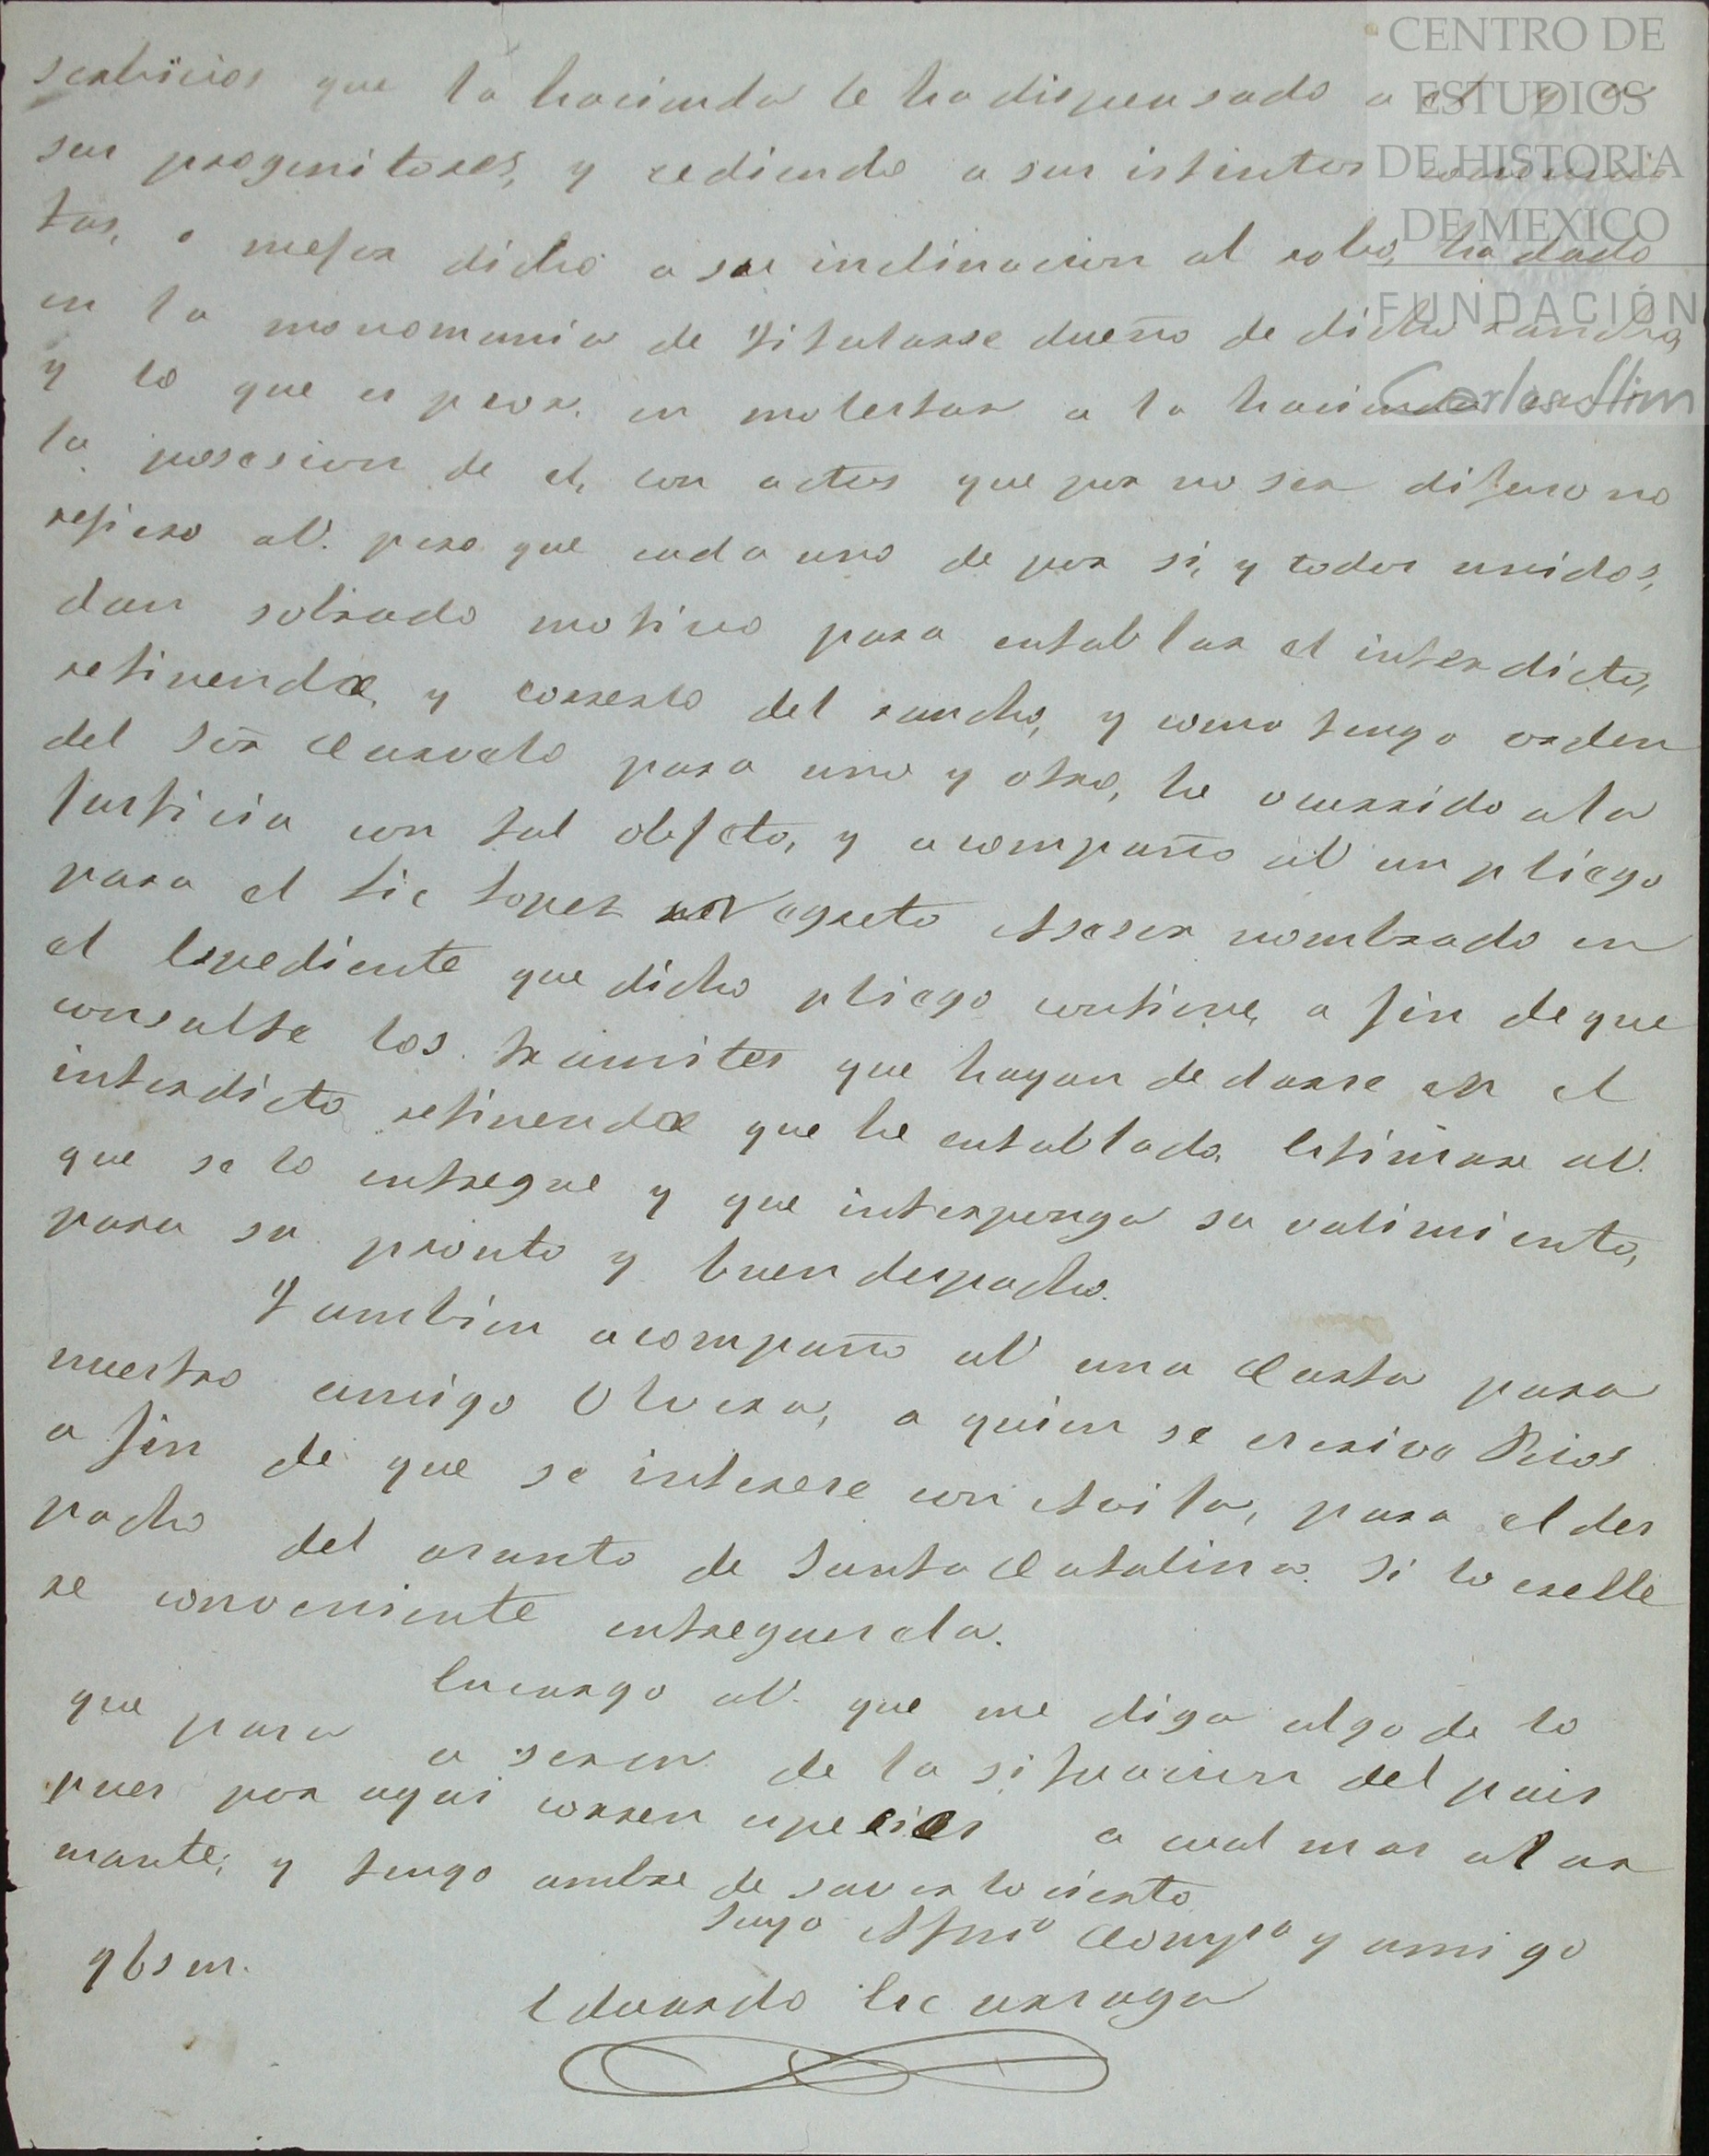 CENTRO DE
ESTUDIOS
DE HISTORIA
DE MEXICO
FUNDACIÓN
Carlos Slim
serbicios que la hacienda le ha dispensado a el y a
sus progenitores, y cediendo a sus istintos comunis
tas, o mejor dicho a su inclinacion al robo, ha dado
en la monomania de titularse dueño de dicho rancho,
y lo que es peor, en molestar a la hacienda en
la posesion de el, con actos que por no ser difuso no
refiero aV. pero que cada uno de por si, y todos unidos,
dan sobrado motivo para entablar el interdicto,
retinendæ, y correrlo del rancho, y como tengo orden
del Sor Cuervato para uno y otro, he ocurrido ala
justicia con tal objeto, y acompaño aV un pliego
para el Lic Lopez Negrete Asesor nombrado en
el Espediente que dicho pliego contiene, a fin deque
consulte los tramites que hayan de darse en el
interdicto retinendæ que he entablado. Estimare aV.
que se lo entregue y que interponga su valimiento,
para su pronto y buen despacho.
Tambien acompaño aV una Carta para
nuestro amigo Olvera, a quien se escrive Rios
a fin de que se interese con Avila, para el des
pacho del asunto de Santa Catalina. Si lo crelle
re conveniente entreguesela.
Encargo aV. que me diga algo de lo
que pasa a serca de la situacion del pais
pues por aqui corren especies a cual mas alar
mante, y tengo ambre de saver lo cierto
Suyo Afmo Compo y amigo
qbsm.
Eduardo Licearraga